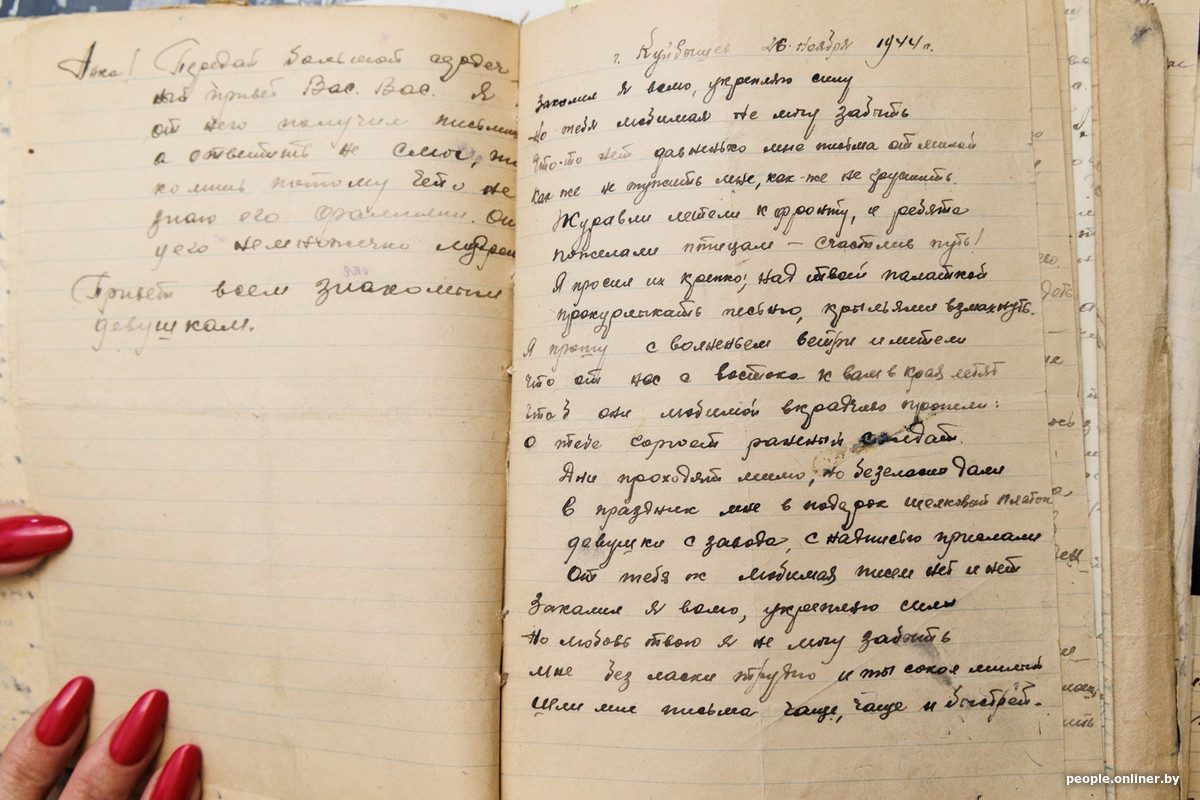 Анка! Передай большой сердеч-
ный привет Вас. Вас. Я
от него получил письмо
а ответить не смог,
потому чето не
знаю его фамилии. Он
у его немножечко
Привет всем знакомым
девушкам.
г. Куйбышев 26 ноября 1944 г.
Закалил я волю, укрепляю силу
Но тебя любимая не могу забыть
Что-то нет давненько мне письма от милой
Как же не тужить мне, как-же не грустить.
Журавли летели к фронту, а ребята
пожелали птицам – счастлив путь!
Я просил их крепко; над твоей палаткой
прокурлыкать песню, крыльями взмахнуть.
Я прошу с волненьем ветры и метели
Что от нас с востока к вам в края летят
Что б они любимой вкрадчиво пропели:
О тебе страдает раненый солдат.
Дни проходят мимо, но
В праздник мне в подарок шелковый платок
девушки с завода, с надписью прислали
От тебя ж любимая писем нет и нет
Закалил я волю, укрепляю силы
Но любовь твою я не могу забыть
Мне без ласки трудно и ты сокол милый
Шли мне письма чаще, чаще и быстрей.
people.onliner.by